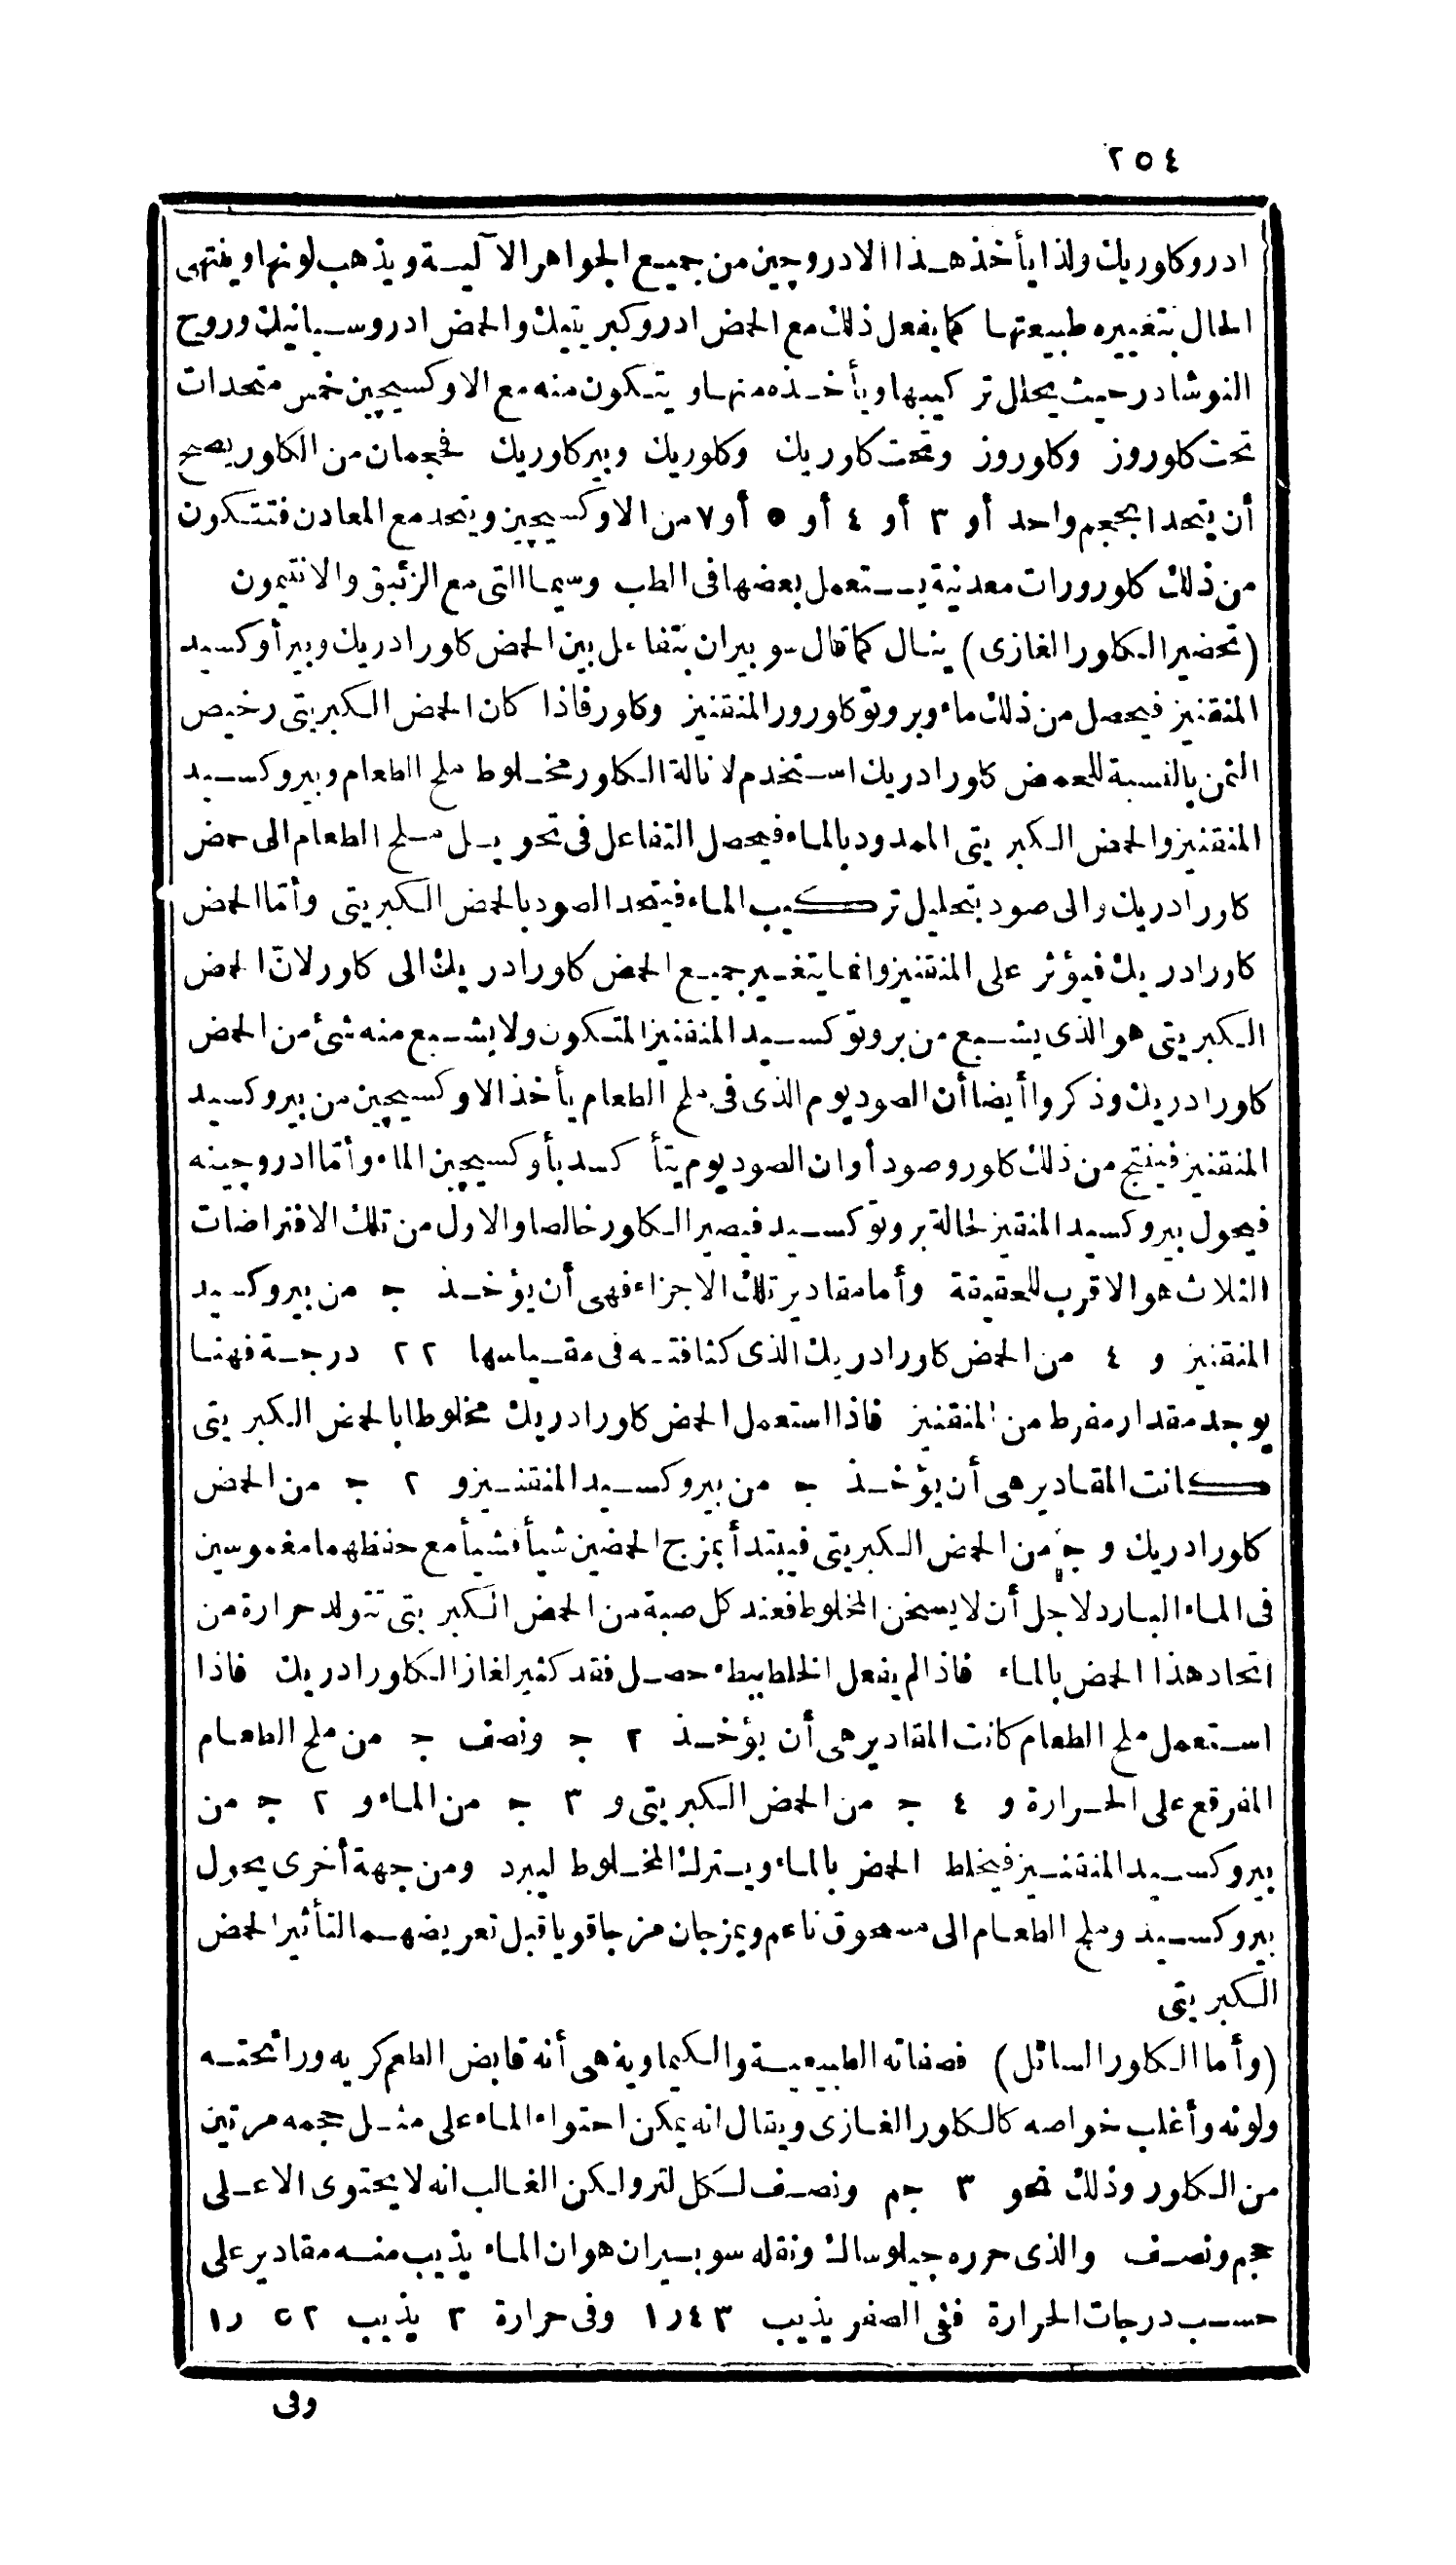 ٢٥٤
ادروكلوريك ولذا يأخذ هذا الادروچين من جميع الجواهر الآلية ويذهب لونها وينتهى
الحال بتغييره طبيعتها كما يفعل ذلك مع الحمض ادروكبريتيك والحمض ادروسيانيك وروح
النوشادر حيث يحلل تركيبها ويأخذه منها ويتكون منه مع الاوكسيچين خمس متحدات
تحت كلوروز وكلوروز وتحت كلوريك وكلوريك وبيركلوريك فحجمان من الكلور يصح
أن يتحدا بحجم واحد أو ٣ أو ٤ أو ٥ أو ٧ من الاوكسيچين ويتحد مع المعادن فتتكون
من ذلك كلورورات معدنية يستعمل بعضها فى الطب وسيما التى مع الزئبق والانتيمون
(تحضير الكلور الغازى) ينال كما قال سوبيران بتفاعل بين الحمض كلورادريك وبيرأوكسيد
المنقنيز فيحصل من ذلك ماء وبروتوكلورور المنقنيز وكلور فاذا كان الحمض الكبريتى رخيص
الثمن بالنسبة للحمض كلورادريك استخدم لانالة الكلور مخلوط ملح الطعام وبيروكسيد
المنقنيز والحمض الكبريتى الممدود بالماء فيحصل التفاعل فى تحويل ملح الطعام الى حمض
كلورادريك والى صود بتحليل تركيب الماء فيتحد الصود بالحمض الكبريتى وأمّا الحمض
كلورادريك فيؤثر على المنقنيز وانما يتغير جميع الحمض كلورادريك الى كلور لانّ الحمض
الكبريتى هو الذى يشبع من بروتوكسيد المنقنيز المتكون ولا يشبع منه شئ من الحمض
كلورادريك وذكروا أيضا أن الصوديوم الذى فى ملح الطعام يأخذ الاوكسيچين من بيروكسيد
المنقنيز فينتج من ذلك كلور وصود أو ان الصوديوم يتأكسد بأوكسيچين الماء وأمّا ادروچينه
فيحول بيروكسيد المنقنيز لحالة بروتوكسيد فيصير الكلور خالصا والاول من تلك الافتراضات
الثلاث هو الاقرب للحقيقة وأما مقادير تلك الاجزاء فهى أن يؤخذ ج من بيروكسيد
المنقنيز و ٤ من الحمض كلورادريك الذى كثافته فى مقياسها ٢٢ درجة فهنا
يوجد مقدار مفرط من المنقنيز فاذا استعمل الحمض كلورادريك مخلوطا بالحمض الكبريتى
كانت المقادير هى أن يؤخذ ج من بيروكسيد المنقنيز و ٢ ج من الحمض
كلورادريك و ج من الحمض الكبريتى فيبتدأ بمزج الحمضين شيأ فشيأ مع حفظهما مغموسين
فى الماء البارد لاجل أن لا يسخن المخلوط فعند كل صبة من الحمض الكبريتى تتولد حرارة من
اتحاد هذا الحمض بالماء فاذا لم يفعل الخلط ببطء حصل فقد كثير لغاز الكلورادريك فاذا
استعمل ملح الطعام كانت المقادير هى أن يؤخذ ٢ ج ونصف ج من ملح الطعام
المفرقع على الحرارة و ٤ ج من الحمض الكبريتى و ٣ ج من الماء و ٢ ج من
بيروكسيد المنقنيز فيخلط الحمض بالماء ويترك المخلوط ليبرد ومن جهة أخرى يحول
بيروكسيد وملح الطعام الى مسحوق ناعم ويمزجان مزجا قويا قبل تعريضهما لتأثير الحمض
الكبريتى
(وأما الكلور السائل) فصفاته الطبيعية والكيماوية هى أنه قابض الطعم كريه ورائحته
ولونه وأغلب خواصه كالكلور الغازى ويقال انه يمكن احتواء الماء على مثل حجمه مرتين
من الكلور وذلك نحو ٣ جم ونصف لكل لتر ولكن الغالب انه لا يحتوى الا على
حجم ونصف والذى حرره جيلوساك ونقله سوبيران هو ان الماء يذيب منه مقادير على
حسب درجات الحرارة ففى الصفر يذيب ١٫٤٣ وفى حرارة ٣ يذيب ١٫٥٢
وفى